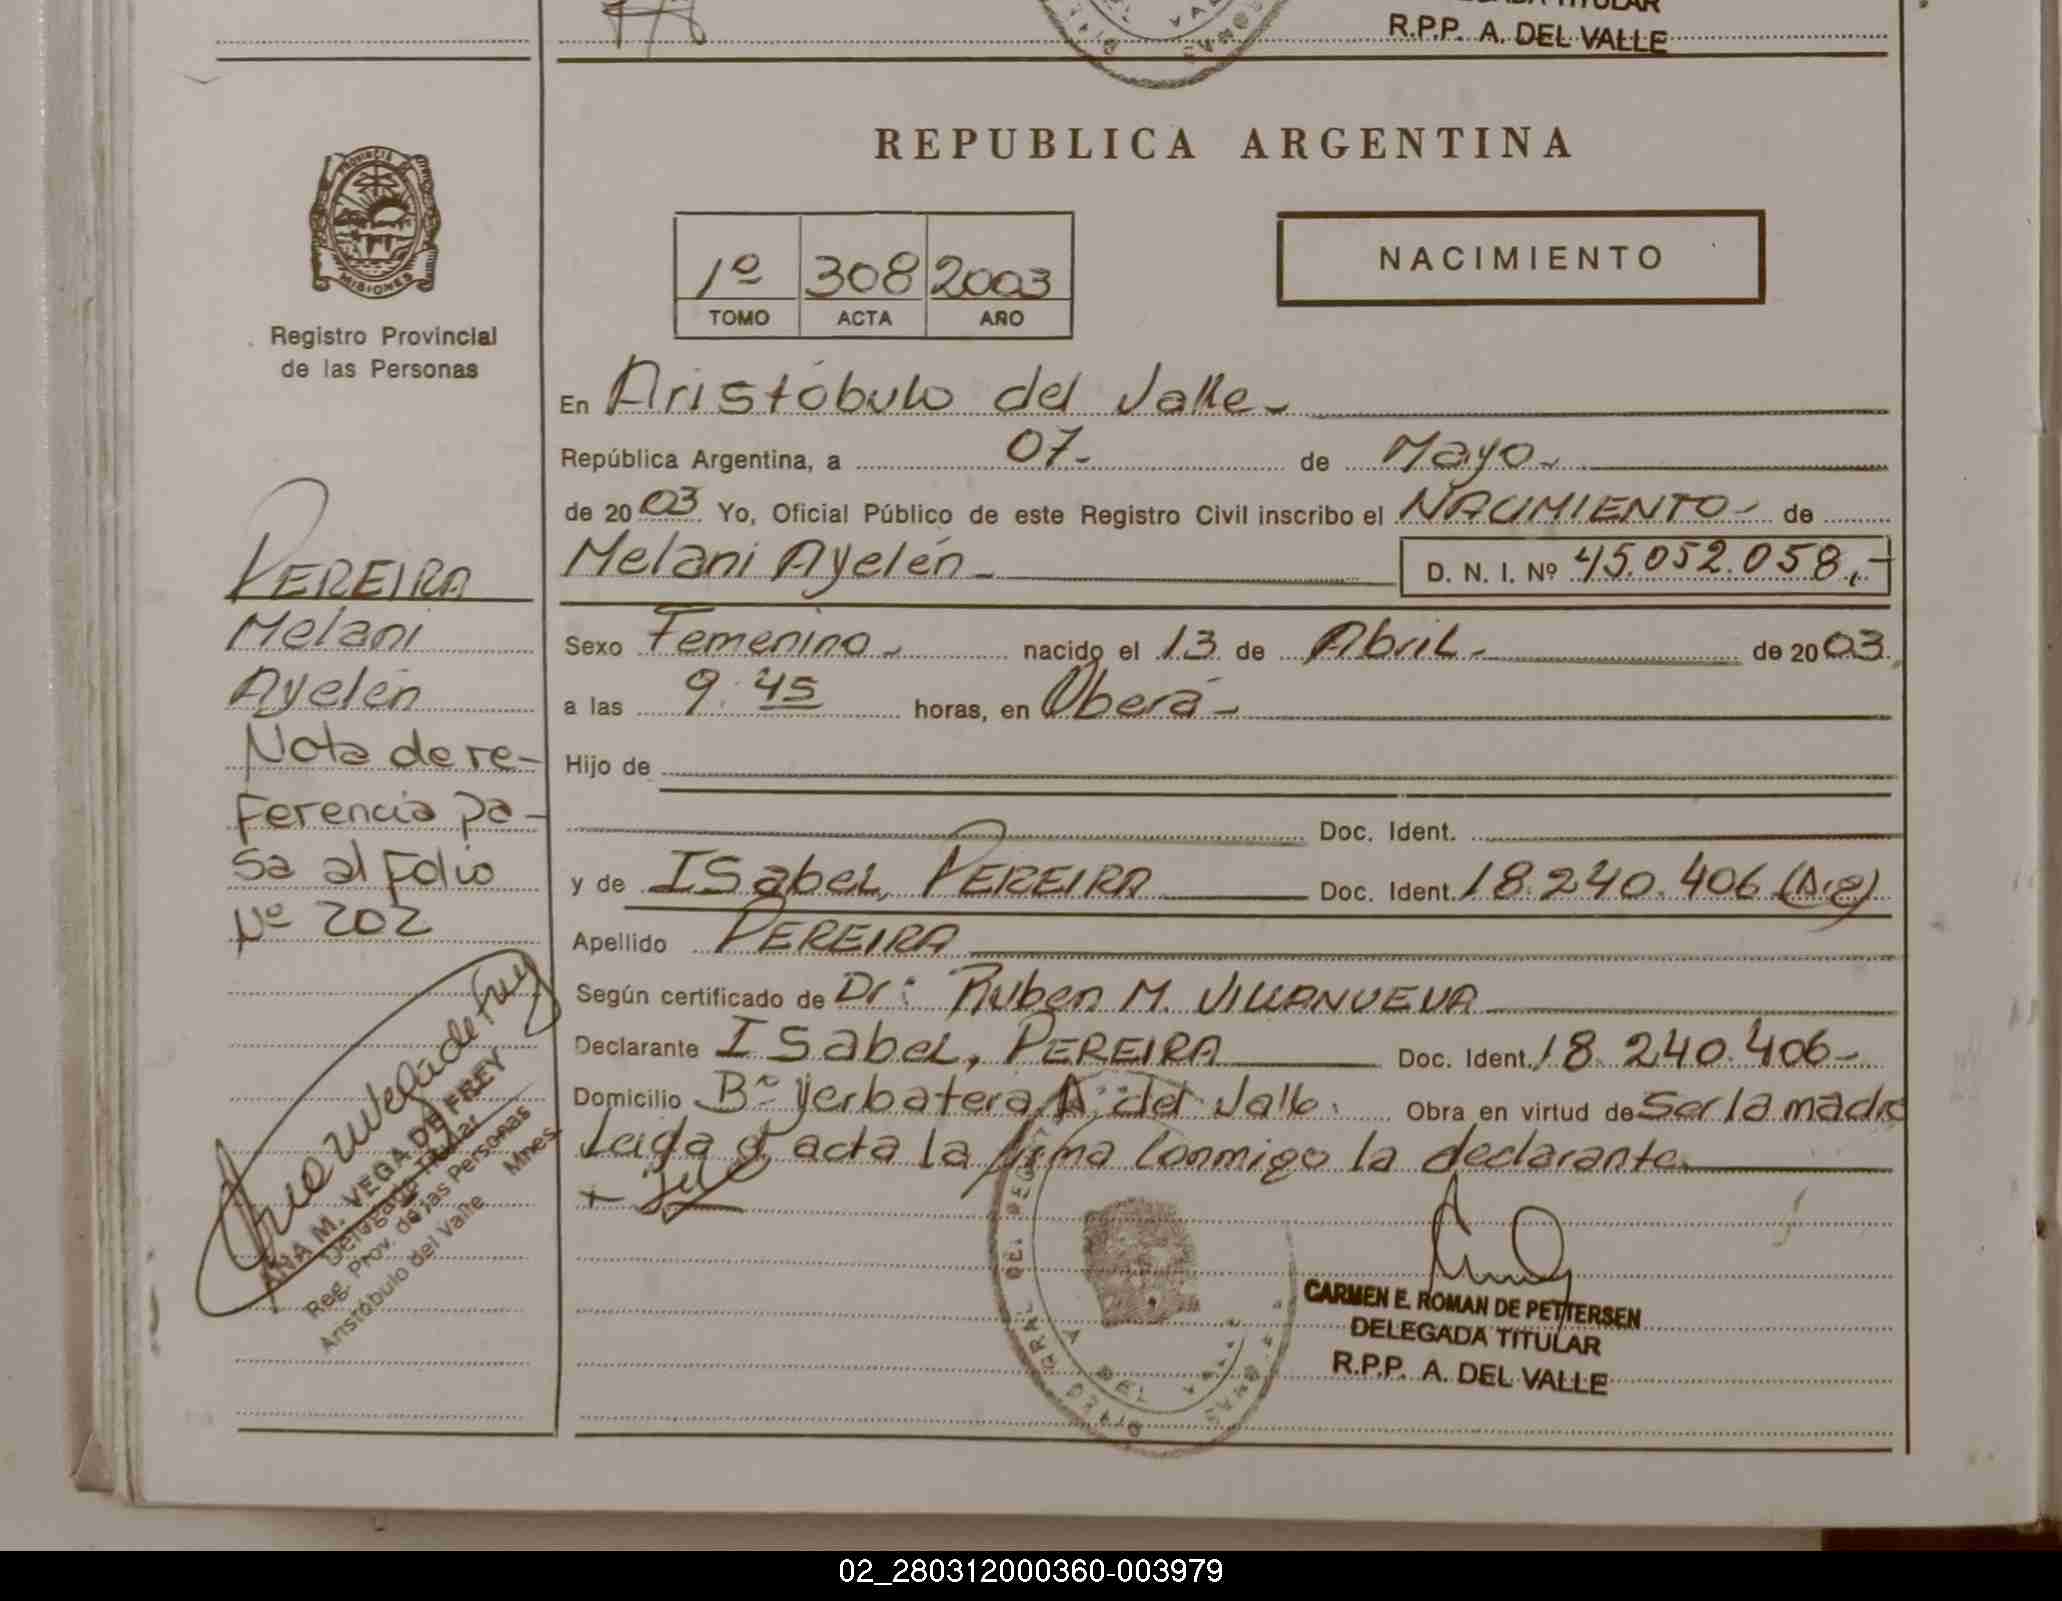 R.P.P. A. DEL VALLE
REPUBLICA ARGENTINA
PROVINCIA DE
MISIONES
Registro Provincial
de las Personas
1º 308 2003
TOMO ACTA AÑO
NACIMIENTO
En Aristóbulo del Valle-
República Argentina, a 07- de Mayo-
de 2003 Yo, Oficial Público de este Registro Civil inscribo el NACIMIENTO- de
Melani Ayelén- D. N. I. Nº 45.052.058,-
Sexo Femenino- nacido el 13 de Abril- de 2003
a las 9:45 horas, en Oberá-
Hijo de
Doc. Ident.
y de Isabel, PEREIRA Doc. Ident. 18.240.406
Apellido PEREIRA
Según certificado de Dr: Ruben M. VILLANUEVA
Declarante Isabel, PEREIRA Doc. Ident. 18.240.406-
Domicilio Bº Yerbatera A. del Valle. Obra en virtud de Ser la madre
Leida el acta la firma conmigo la declarante
PEREIRA
Melani
Ayelén
Nota de re-
ferencia pa-
sa al Folio
Nº 202
ANA M. VEGA DE FREY
Delegada Titular
Reg. Prov. de las Personas
Aristóbulo del Valle Mnes
CARMEN E. ROMAN DE PETTERSEN
DELEGADA TITULAR
R.P.P. A. DEL VALLE
02_280312000360-003979